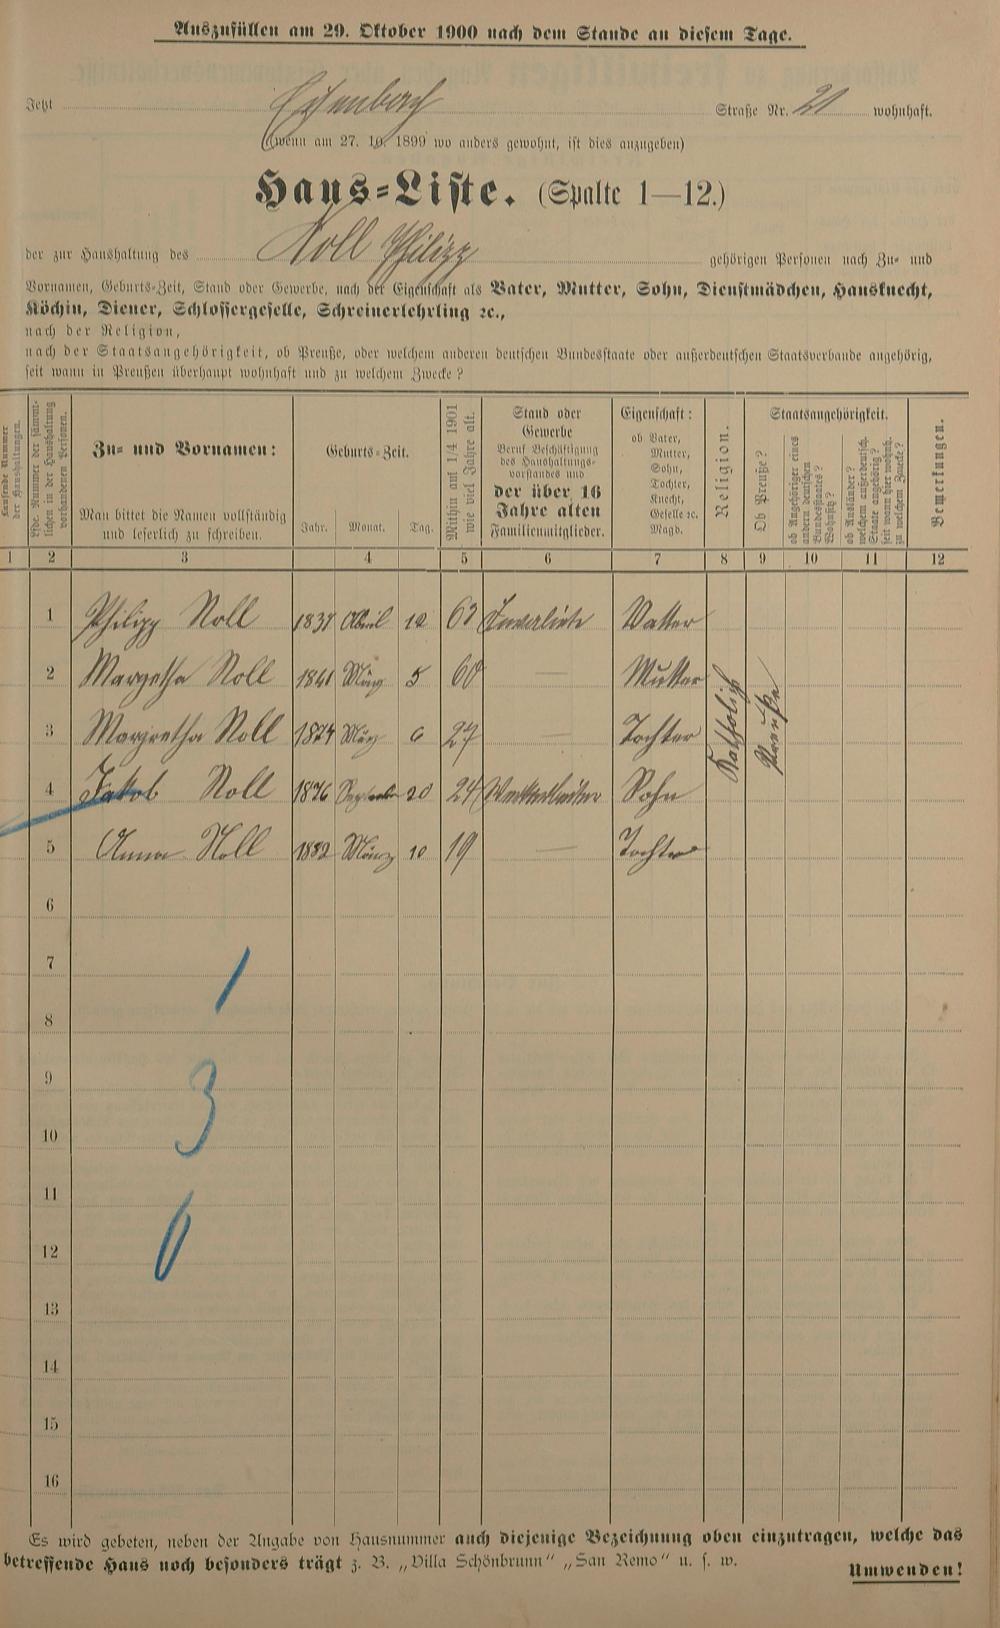 Auszufüllen am 29. Oktober 1900 nach dem Stande an diesem Tage.
Jetzt Eschenbach Straße Nr. 21 wohnhaft.
(wenn am 27. 10. 1899 wo anders gewohnt, ist dies anzugeben)
Haus-Liste. (Spalte 1—12.)
der zur Haushaltung des Noll Philipp gehörigen Personen nach Zu- und
Vornamen, Geburts-Zeit, Stand oder Gewerbe, nach der Eigenschaft als Vater, Mutter, Sohn, Dienstmädchen, Hausknecht,
Köchin, Diener, Schlossergeselle, Schreinerlehrling ꝛc.,
nach der Religion,
nach der Staatsangehörigkeit, ob Preuße, oder welchem anderen deutschen Bundesstaate oder außerdeutschen Staatsverbande angehörig,
seit wann in Preußen überhaupt wohnhaft und zu welchem Zwecke?
Laufende Nummer
der Haushaltungen.
Lfde. Nummer der sämmt-
lichen in der Haushaltung
vorhandenen Personen.
Zu- und Vornamen:
Man bittet die Namen vollständig
und leserlich zu schreiben.
Geburts-Zeit.
Jahr. Monat. Tag.
Mithin auf 1/4 1901
wie viel Jahre alt.
Stand oder
Gewerbe
Beruf Beschäftigung
des Haushaltungs-
vorstandes und
der über 16
Jahre alten
Familienmitglieder.
Eigenschaft:
ob Vater,
Mutter,
Sohn,
Tochter,
Knecht,
Geselle ꝛc.
Magd.
Religion.
Staatsangehörigkeit.
Ob Preuße?
ob Angehöriger eines
andern deutschen
Bundesstaates?
Wohnsitz?
ob Ausländer?
welchem außerdeutsch.
Staate angehörig?
seit wann hier wohnh.
zu welchem Zwecke?
Bemerkungen.
1 2 3 4 5 6 7 8 9 10 11 12
1 Philipp Noll 1837 April 12 63 Invalide Vatter
2 Margetha Noll 1841 März 5 60 — Mutter
3 Margretha Noll 1874 März 6 27 — Tochter
4 Jakob Noll 1876 September 20 24 Sohn
5 Anna Noll 1882 März 10 19 — Tochter
Katholisch
Preuße
6
7
1
8
9
3
10
11
0
12
13
14
15
16
Es wird gebeten, neben der Angabe von Hausnummer auch diejenige Bezeichnung oben einzutragen, welche das
betreffende Haus noch besonders trägt z. B. „Villa Schönbrunn" „San Remo" u. s. w.
Umwenden!